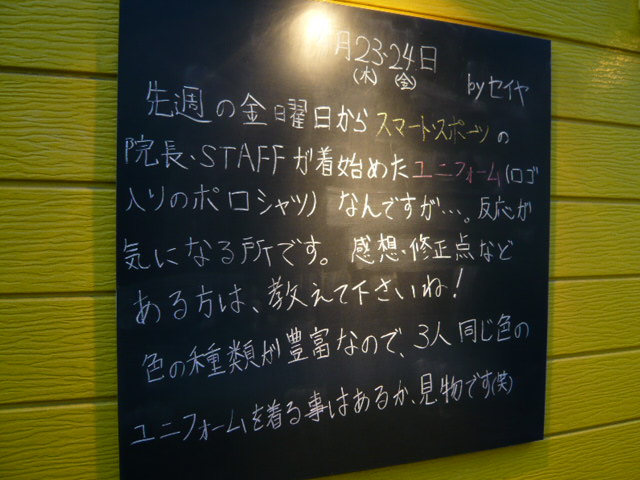 月23・24日
(木) (金) byセイヤ
先週の金曜日からスマート・スポーツの
院長・STAFFが着始めたユニフォーム(ロゴ
入りのポロシャツ) なんですが…。反応が
気になる所です。感想・修正点など
ある方は、教えて下さいね!
色の種類が豊富なので、3人同じ色の
ユニフォームを着る事はあるか、見物です(笑)